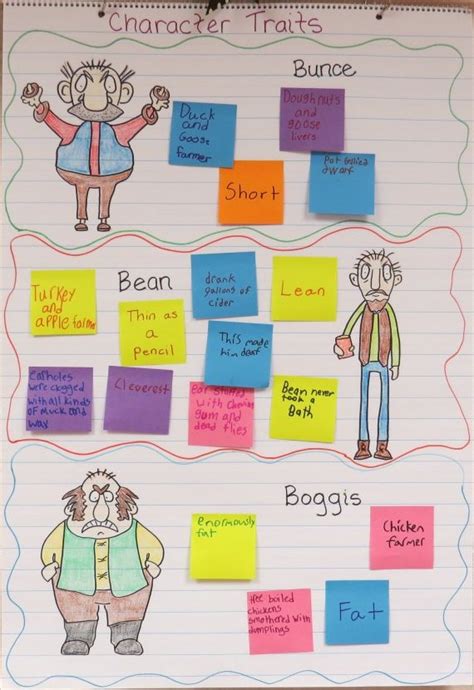 Character Traits
Bunce
Duck
and
Goose
farmer
Doughnuts
and
goose
livers
Short
Pot bellied
dwarf
Bean
Turkey
and
apple farmer
Thin as
a
pencil
drank
gallons of
cider
Lean
This made
him deaf
earholes
were clogged
with all kinds
of muck and
wax
Cleverest
ear stuffed
with chewing
gum and
dead flies
Bean never
took a
Bath
Boggis
enormously
fat
Chicken
farmer
boiled
chickens
smothered with
dumplings
Fat